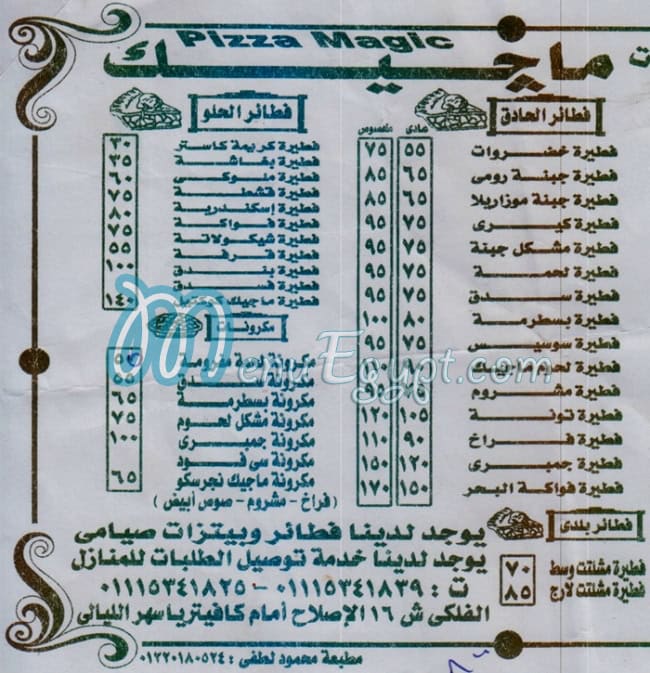 Pizza Magic
ماچيك
ت
فطائر الحادق
عادى
مخصوص
فطيرة خضروات ٥٥ ٧٥
فطيرة جبنة رومى ٦٥ ٨٥
فطيرة جبنة موزاريلا ٦٥ ٨٥
فطيرة كيرى ٧٥ ٩٥
فطيرة مشكل جبنة ٧٥ ٩٥
فطيرة لحمة ٧٥ ٩٥
فطيرة سدق ٧٥ ٩٥
فطيرة بسطرمة ٨٠ ١٠٠
فطيرة سوسيس ٧٥ ٩٥
فطيرة لحوم ماجيك
فطيرة مشروم
فطيرة تونة ١٠٥ ١٢٠
فطيرة فراخ ٩٠ ١١٠
فطيرة جمبرى ١٢٠ ١٥٠
فطيرة فواكة البحر ١٥٠ ١٧٠
فطائر الحلو
فطيرة كريمة كاستر ٣٠
فطيرة بغاشة ٣٥
فطيرة ملوكى ٦٠
فطيرة قشطة ٧٥
فطيرة إسكندرية ٨٠
فطيرة فواكة ٧٥
فطيرة شيكولاتة ٥٥
فطيرة قرفة
فطيرة بندق ١٠٠
فطيرة فسدق
فطيرة ماجيك ١٤٠
مكرونات
مكرونة
مكرونة سدق ٥٥
مكرونة بسطرمة ٦٥
مكرونة مشكل لحوم ٧٥
مكرونة جمبرى ١٠٠
مكرونة سى فود
مكرونة ماجيك نجرسكو ٦٥
(فراخ - مشروم - صوص أبيض)
MenuEgypt.com
فطائر بلدى
فطيرة مشلتت وسط ٧٠
فطيرة مشلتت لارج ٨٥
يوجد لدينا فطائر وبيتزات صيامى
يوجد لدينا خدمة توصيل الطلبات للمنازل
ت : ٠١١١٥٣٤١٨٣٩ - ٠١١١٥٣٤١٨٢٥
الفلكى ش ١٦ الإصلاح أمام كافيتريا سهر الليالى
مطبعة محمود لطفى : ٠١٢٢٠١٨٠٥٢٤